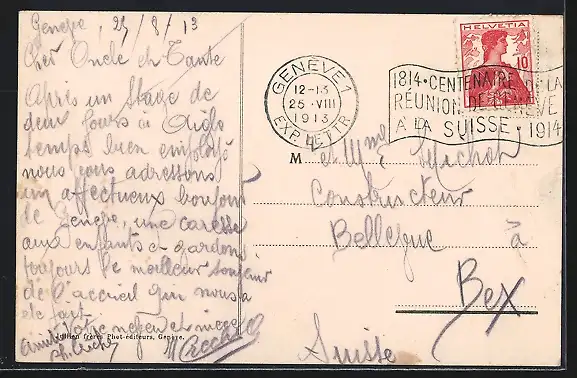 Genève, 25/8/13
Cher Oncle et Tante
Après un stage de
deux jours à Aigle
temps bien employé
nous vous adressons
un affectueux bonjour
de Genève, une caresse
aux enfants et gardons
toujours le meilleur souvenir
de l'accueil qui nous a
été fait.
Votre neveu et nièce
Jullien frères Phot-éditeurs, Genève.
GENÈVE 1
12-13
25.VIII
1913
EXP. LETTR
1814 • CENTENAIRE DE LA
RÉUNION DE GENÈVE
A LA SUISSE • 1914
HELVETIA
10
M et Mme Michot
Constructeur
Bellevue à
Bex
Suisse